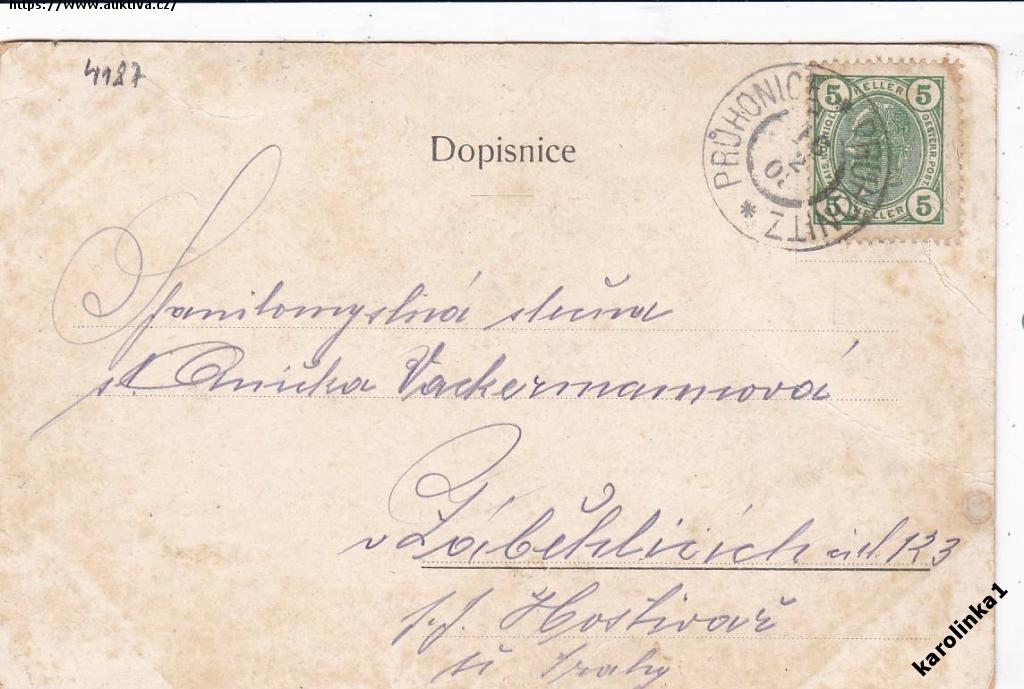 https://www.auktiva.cz/
4187
Dopisnice
PRŮHONICE * PRUHONITZ *
5 HELLER 5
KAIS. KÖNIGL. OESTERR. POST.
5 HELLER 5
Spanilomyslná slečna
sl. Anička Vackermannová
v Záběhlicích čísl. 133
p.p. Hostivař
u Prahy
karolinka1